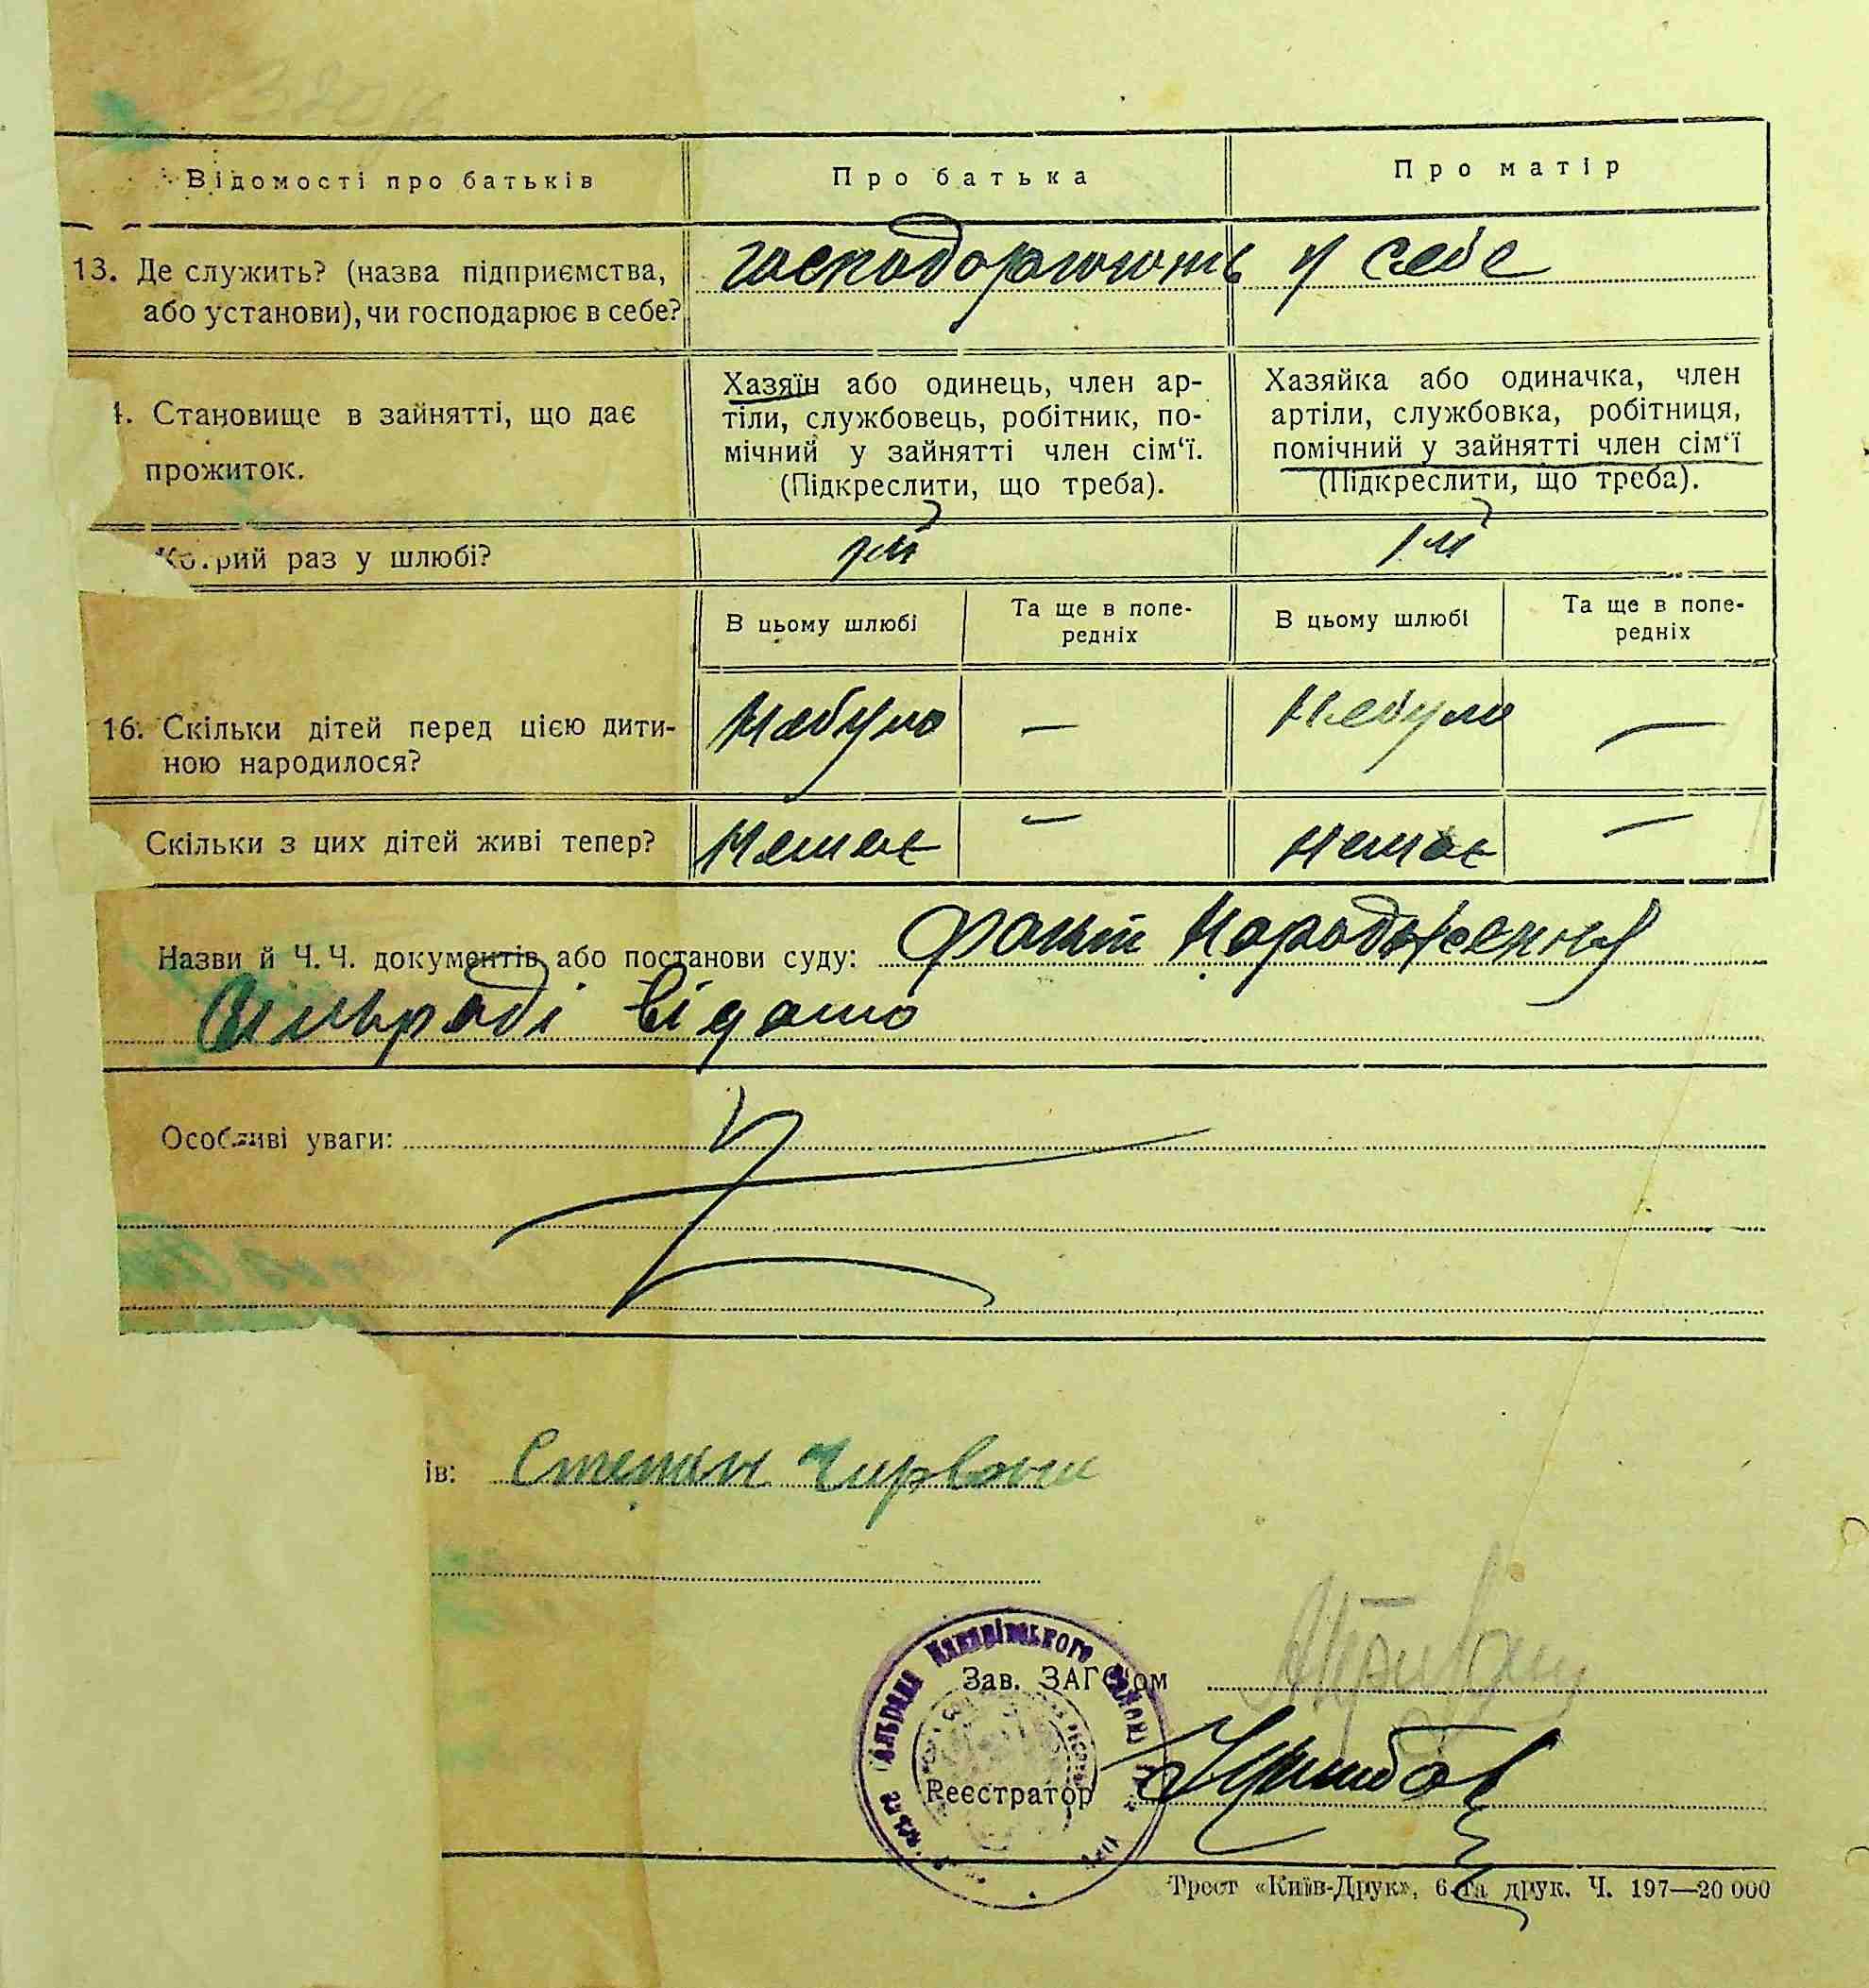 Відомості про батьків
Про батька
Про матір
13. Де служить? (назва підприємства, або установи), чи господарює в себе?
господорюють у себе
4. Становище в зайнятті, що дає прожиток.
Хазяїн або одинець, член ар-
тіли, службовець, робітник, по-
мічний у зайнятті член сім‘ї.
(Підкреслити, що треба).
Хазяйка або одиначка, член
артіли, службовка, робітниця,
помічний у зайнятті член сім‘ї
(Підкреслити, що треба).
рий раз у шлюбі?
1й
1й
В цьому шлюбі
Та ще в попе-
редніх
В цьому шлюбі
Та ще в попе-
редніх
16. Скільки дітей перед цією дити-
ною народилося?
Небуло — Небуло —
Скільки з цих дітей живі тепер?
Немає — Немає —
Назви й Ч. Ч. документів або постанови суду: Факт народження
Сільраді відомо
Особливі уваги:
ів: Степан
Зав. ЗАГС'ом
Реєстратор
Трест «Київ-Друк», 6-та друк. Ч. 197—20 000